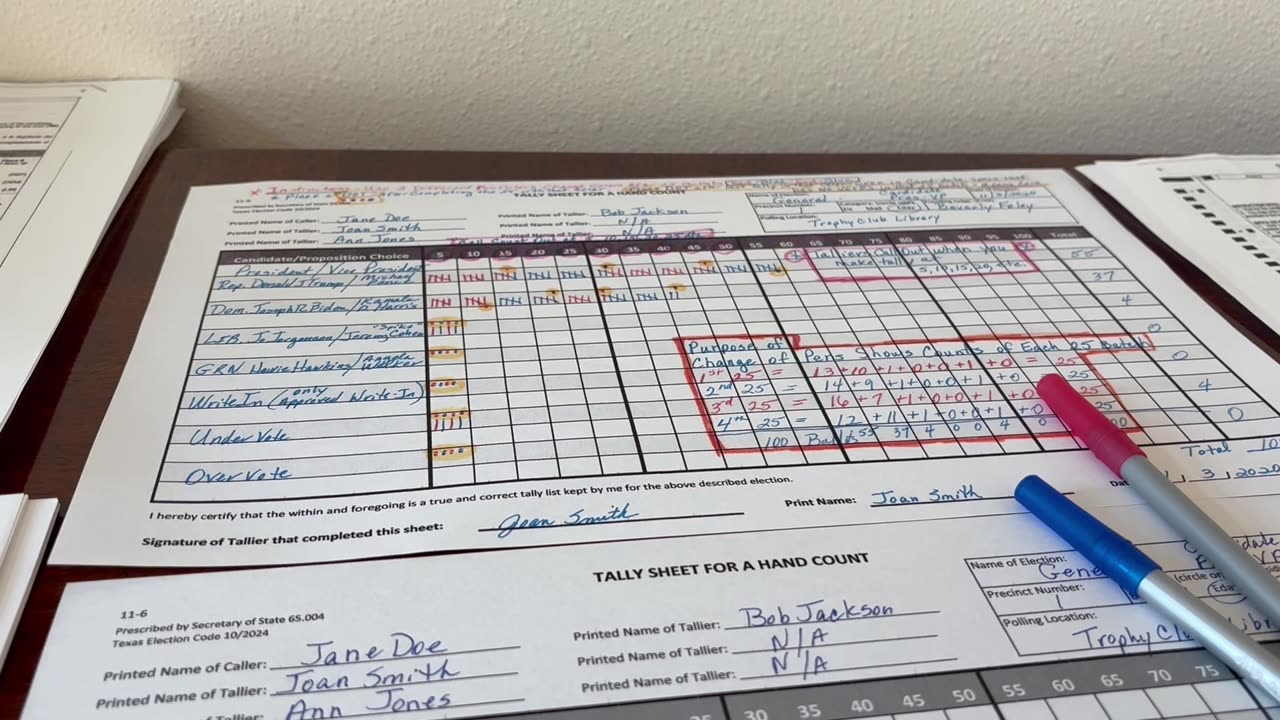 TALLY SHEET FOR A HAND COUNT
11-6
Prescribed by Secretary of State
Texas Election Code 10/2024
Printed Name of Caller: Jane Doe
Printed Name of Tallier: Joan Smith
Printed Name of Tallier: Ann Jones
Printed Name of Tallier: Bob Jackson
Printed Name of Tallier: N/A
Printed Name of Tallier: N/A
General
Polling Location: Trophy Club Library
Candidate/Proposition Choice 5 10 15 20 25 30 35 40 45 50 55 60 65 70 75 80 85 90 95 100 Total
President/Vice President
Rep. Donald J Trump/ 55
Dem. Joseph R Biden/ Harris 37
LIB. Jo Jorgensen/Jeremy "Spike" Cohen 4
GRN Howie Hawkins/Angela Walker 0
Write In (only approved Write-In) 0
Under Vote 4
Over Vote 0
Talliers Call Out when you
make tally at
5, 10, 15, 20, etc.
Purpose of
Change of Pens Shows Counts of Each 25 Batch
1st 25 = 13+10+1+0+0+1+0 = 25
2nd 25 = 14+9+1+0+0+1+0 25
3rd 25 = 16+7+1+0+0+1+0 25
4th 25 = 12+11+1+0+0+1+0 25
100 Ballots 55 37 4 0 0 4 0
Total
I hereby certify that the within and foregoing is a true and correct tally list kept by me for the above described election.
Signature of Tallier that completed this sheet: Joan Smith
Print Name: Joan Smith
3, 2020
TALLY SHEET FOR A HAND COUNT
11-6
Prescribed by Secretary of State 65.004
Texas Election Code 10/2024
Printed Name of Caller: Jane Doe
Printed Name of Tallier: Joan Smith
Ann Jones
Printed Name of Tallier: Bob Jackson
Printed Name of Tallier: N/A
Printed Name of Tallier: N/A
Name of Election:
Precinct Number: 1
(circle on
Polling Location:
Trophy Clu
30 35 40 45 50 55 60 65 70 75